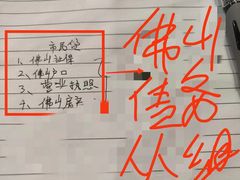 市民贷
1、佛山社保
2、佛山户口
3、营业执照
4、佛山房产
佛山
债务
从组